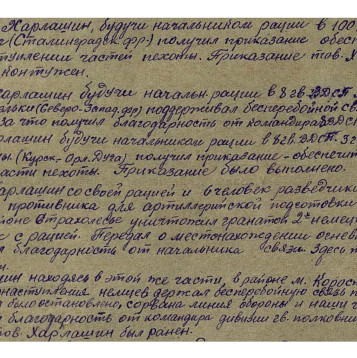 Харлашин, будучи начальником рации в 100
(Сталинградск. фр-) получил приказание обесп
туплении частей пехоты. Приказание тов. Х
контужен.
Харлашин будучи начальн. рации в 8 гв. ВДСП
(Северо-Запад. фр) поддерживал бесперебойной св
за что получил благодарность от командира
рлашин будучи начальником рации в 8 гв. ВДСП.
(Курск-Орл. Дуга) получил приказание - обеспечи
части пехоты. Приказание было выполнено.
Харлашин со своей рацией и 6 человек разведчик
противника для артиллерийской подготовки
оне Страхолесье уничтожил гранатой 2х немец
с рацией. Передал о местонахождение
благодарность от начальника связи. Здесь ж
шин находясь в этой же части, в районе м. Корост
наступления немцев держал бесперебойную связь
было остановлено, сорвана линия обороны и наши ч
благодарность от командира дивизии гв. полковни
тов. Харлашин был ранен.